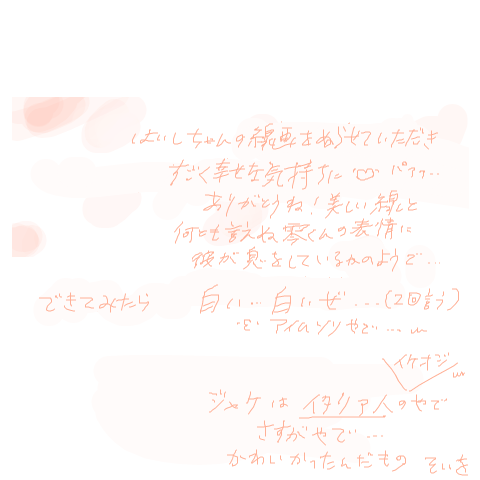 はいしちゃんの線画をぬらせていただき
すごく幸せな気持ちに パアァ…
ありがとうね！美しい線と
何とも言えぬ零くんの表情に
彼が息をしているかのようで…
できてみたら 白い…白いぜ…(2回言う)
アイムソリやで…
イケオジ
ジャケは イタリア人のやで
さすがやで…
かわいかったんだもの